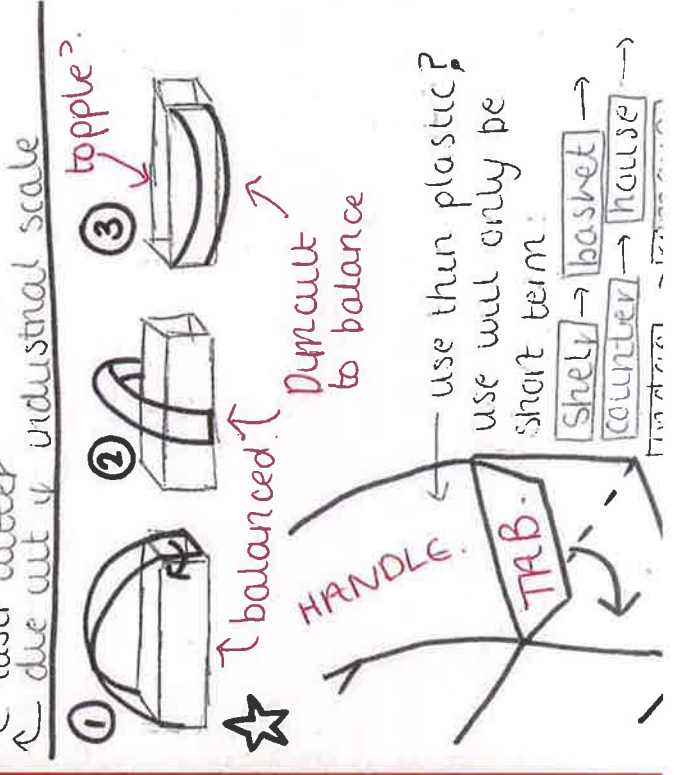 laser cutter
die cut if industrial scale
①
②
③
topple?
balanced.
Difficult
to balance
HANDLE.
TAB.
use thin plastic?
use will only be
short term:
shelf → basket →
counter → house →